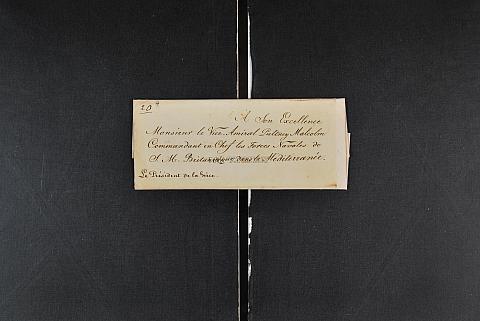 20
A Son Excellence
Monsieur le Vice-Amiral Pultney Malcolm
Commandant en Chef les Forces Navales de
S. M. Britannique dans la Méditerranée.
Le Président de la Grèce.